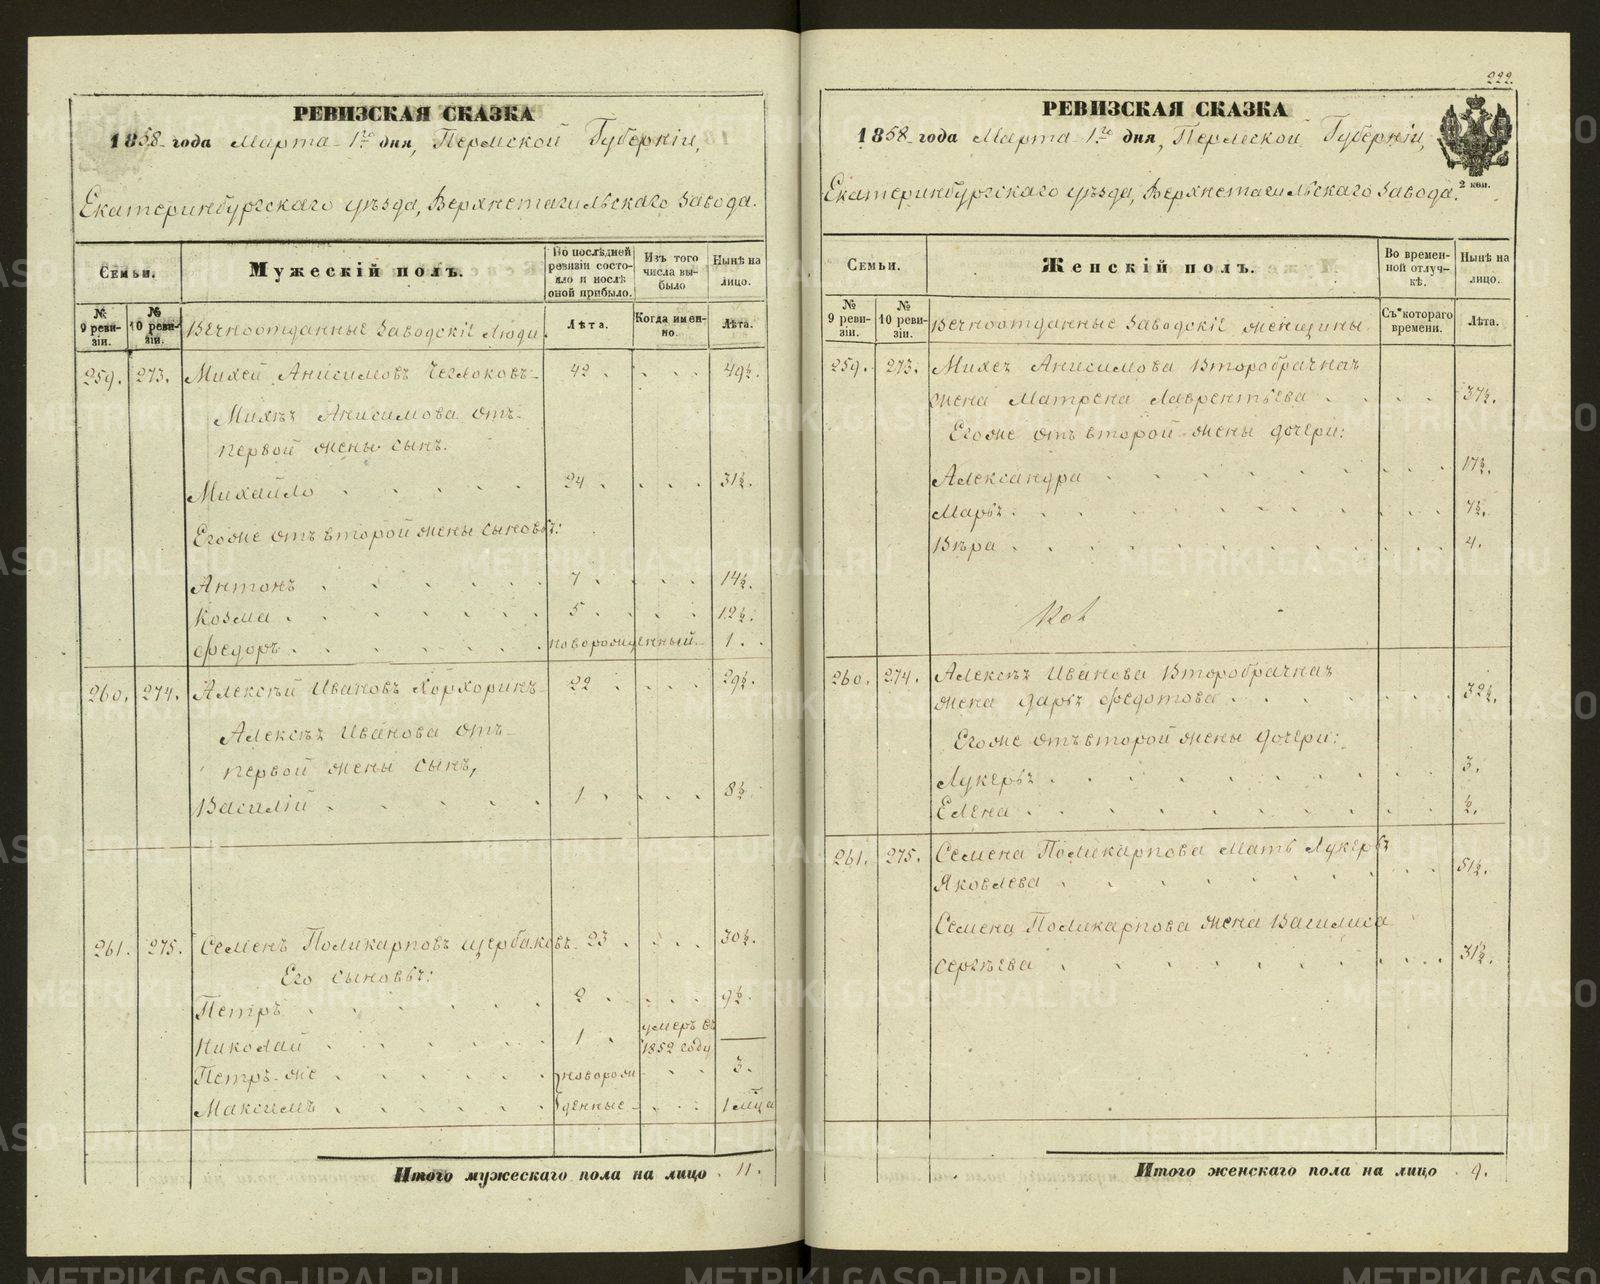 РЕВИЗСКАЯ СКАЗКА
1858 года Марта 1го дня, Пермской Губерніи,
Екатеринбургскаго уѣзда, Верхнетагильскаго завода.
Семьи.
Мужескій полъ.
По послѣдней ревизіи состояло и послѣ оной прибыло.
Изъ того числа выбыло
Нынѣ на лицо.
№ 9 ревизіи.
№ 10 ревизіи.
Вечноотданные заводскіе люди.
Лѣта.
Когда именно.
Лѣта.
259. 273. Михей Анисимовъ Чеглоковъ 42 49½.
Михѣя Анисимова отъ
первой жены сынъ.
Михайло 24 31½.
Его же отъ второй жены сыновья:
Антонъ 7 14½.
Козма 5 12½.
Федоръ новорожденный 1
260. 274. Алексѣй Ивановъ Хорхоринъ 22 29½.
Алексѣя Иванова отъ
первой жены сынъ,
Василій 1 8½.
261. 275. Семенъ Поликарповъ Щербаковъ 23 30½.
Его сыновья:
Петръ 2 9½.
Николай 1 умеръ въ 1852 году
Петръ же новорож- 3.
Максимъ денные 1 м̃ца
Итого мужескаго пола на лицо 11.
222.
РЕВИЗСКАЯ СКАЗКА
1858 года Марта 1го дня, Пермской Губерніи,
2 коп.
Екатеринбургскаго уѣзда, Верхнетагильскаго завода.
Семьи.
Женскій полъ.
Во временной отлучкѣ.
Нынѣ на лицо.
№ 9 ревизіи.
№ 10 ревизіи.
Вечноотданные заводскіе женщины
Съ котораго времени.
Лѣта.
259. 273. Михея Анисимова второбрачная
жена Матрена Лаврентьева 37½.
Его же отъ второй жены дочери:
Александра 17½.
Марья 7½.
Вѣра 4.
260. 274. Алексѣя Иванова второбрачная
жена Дарья Федотова 32½.
Его же отъ второй жены дочери:
Лукерья 3.
Елена ½.
261. 275. Семена Поликарпова мать Лукерья
Яковлева 51½.
Семена Поликарпова жена Василиса
Сергѣева 31½.
Итого женскаго пола на лицо 9.
METRIKI.GASO-URAL.RU